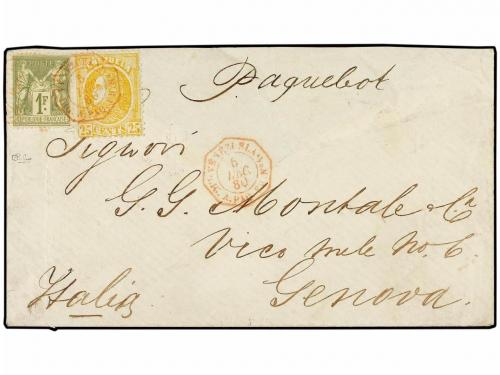 POSTE
1F
REPUBLIQUE FRANÇAISE
25 CENTS 25
Paquebot
Signori
6
80
G. G. Montale & Ca
Vico mele No. 6.
Italia
Genova.